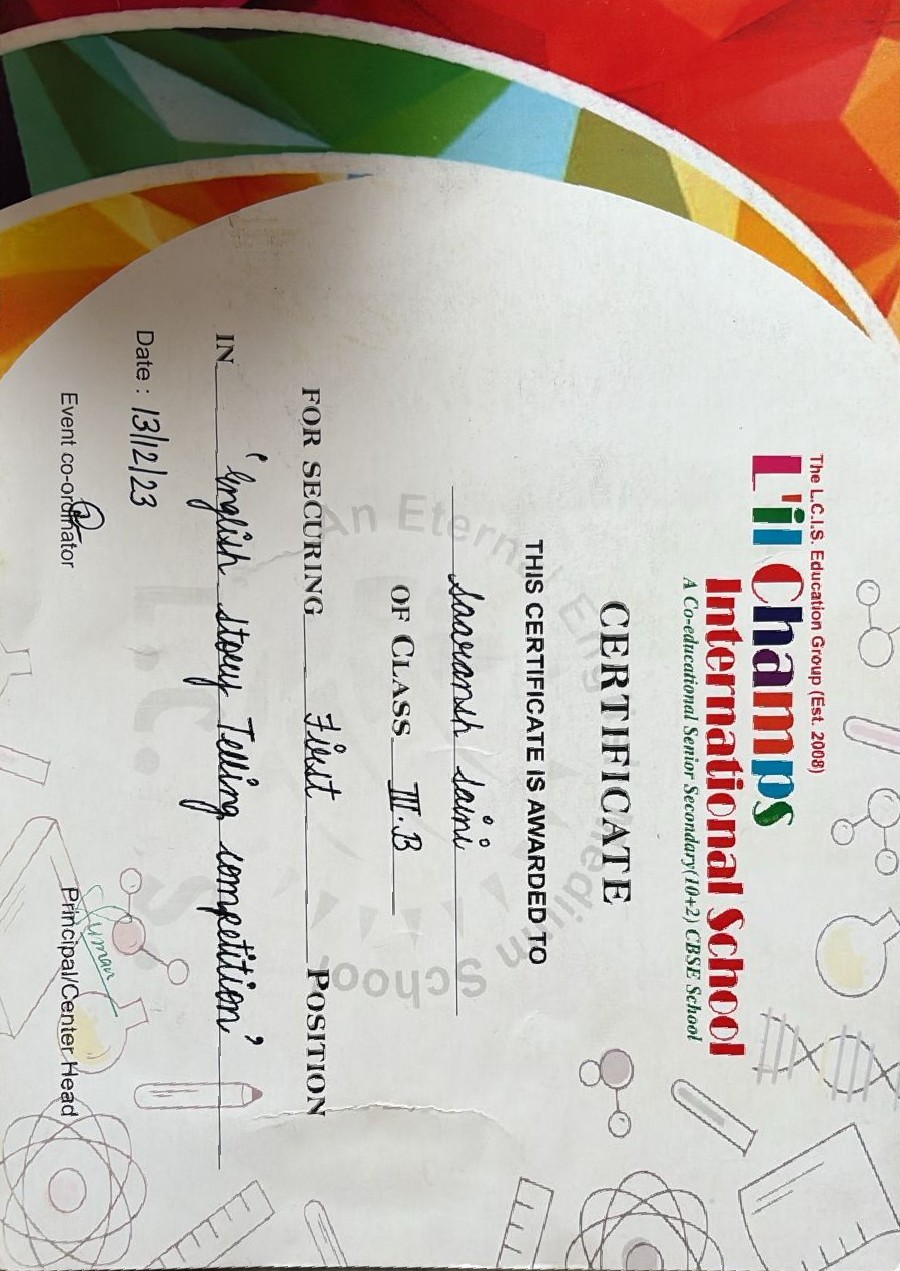 The L.C.I.S. Education Group (Est. 2008)
L'il Champs
International School
A Co-educational Senior Secondary(10+2) CBSE School
CERTIFICATE
THIS CERTIFICATE IS AWARDED TO
Saaransh Saini
OF CLASS III.B
FOR SECURING First POSITION
IN 'English story Telling competition'
Date : 13/12/23
Event co-ordinator
Suman
Principal/Center Head